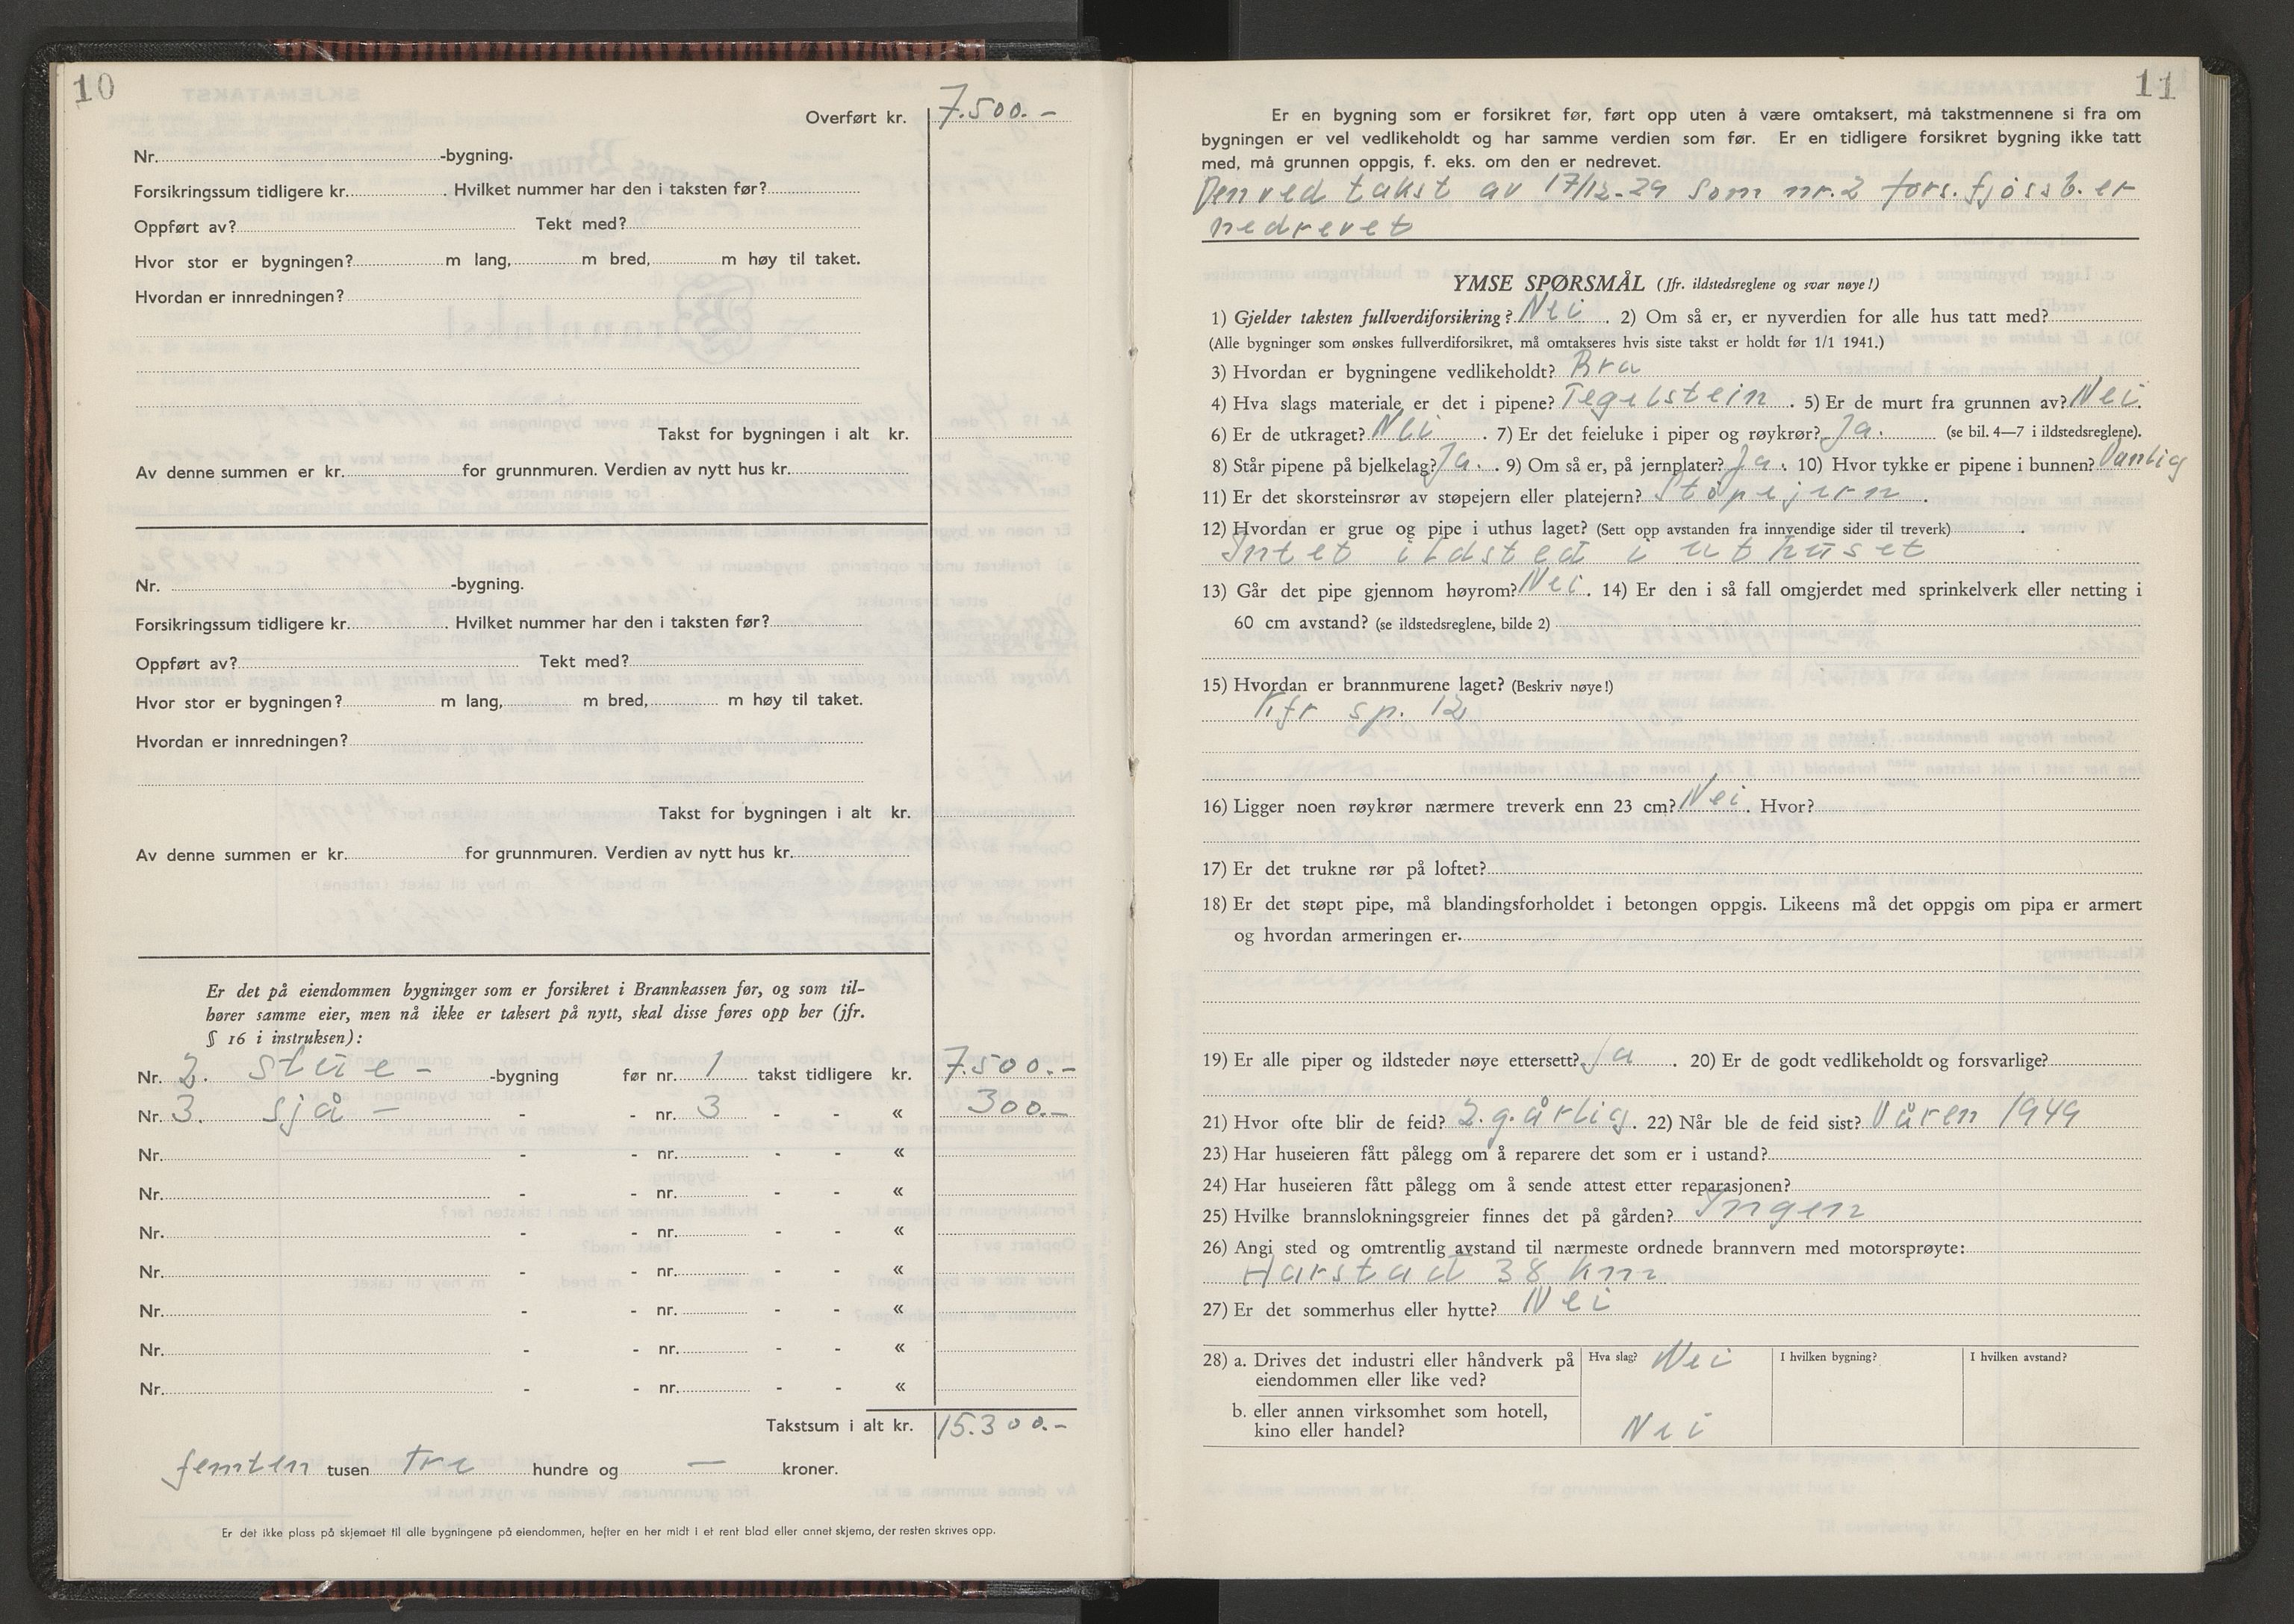 10
Overført kr. 7.500.-
Nr. -bygning.
Forsikringssum tidligere kr. . Hvilket nummer har den i taksten før?
Oppført av? Tekt med?
Hvor stor er bygningen? m lang, m bred, m høy til taket.
Hvordan er innredningen?
Takst for bygningen i alt kr.
Av denne summen er kr. for grunnmuren. Verdien av nytt hus kr.
Nr. -bygning.
Forsikringssum tidligere kr. . Hvilket nummer har den i taksten før?
Oppført av? Tekt med?
Hvor stor er bygningen? m lang, m bred, m høy til taket.
Hvordan er innredningen?
Takst for bygningen i alt kr.
Av denne summen er kr. for grunnmuren. Verdien av nytt hus kr.
Er det på eiendommen bygninger som er forsikret i Brannkassen før, og som til-
hører samme eier, men nå ikke er taksert på nytt, skal disse føres opp her (jfr.
§ 16 i instruksen):
Nr. 2. stue - -bygning før nr. 1 takst tidligere kr. 7.500.-
Nr. 3. sjå - - - nr. 3 - - « 300.-
Nr. - - nr. - - «
Nr. - - nr. - - «
Nr. - - nr. - - «
Nr. - - nr. - - «
Nr. - - nr. - - «
Nr. - - nr. - - «
Nr. - - nr. - - «
Takstsum i alt kr. 15.300.-
femten tusen tre hundre og — kroner.
Er det ikke plass på skjemaet til alle bygningene på eiendommen, hefter en her midt i et rent blad eller annet skjema, der resten skrives opp.
11
Er en bygning som er forsikret før, ført opp uten å være omtaksert, må takstmennene si fra om
bygningen er vel vedlikeholdt og har samme verdien som før. Er en tidligere forsikret bygning ikke tatt
med, må grunnen oppgis, f. eks. om den er nedrevet.
Den ved takst av 17/12-29 som nr. 2 fors. fjøsb. er
nedrevet
YMSE SPØRSMÅL (Jfr. ildstedsreglene og svar nøye!)
1) Gjelder taksten fullverdiforsikring? Nei . 2) Om så er, er nyverdien for alle hus tatt med?
(Alle bygninger som ønskes fullverdiforsikret, må omtakseres hvis siste takst er holdt før 1/1 1941.)
3) Hvordan er bygningene vedlikeholdt? Bra
4) Hva slags materiale er det i pipene? Tegelstein . 5) Er de murt fra grunnen av? Nei.
6) Er de utkraget? Nei . 7) Er det feieluke i piper og røykrør? Ja. (se bil. 4—7 i ildstedsreglene).
8) Står pipene på bjelkelag? Ja. . 9) Om så er, på jernplater? Ja . 10) Hvor tykke er pipene i bunnen? Vanlig
11) Er det skorsteinsrør av støpejern eller platejern? Støpejern .
12) Hvordan er grue og pipe i uthus laget? (Sett opp avstanden fra innvendige sider til treverk) .
Intet ildsted i uthuset
13) Går det pipe gjennom høyrom? Nei . 14) Er den i så fall omgjerdet med sprinkelverk eller netting i
60 cm avstand? (se ildstedsreglene, bilde 2)
15) Hvordan er brannmurene laget? (Beskriv nøye!)
Kfr sp. 12
16) Ligger noen røykrør nærmere treverk enn 23 cm? Nei . Hvor?
17) Er det trukne rør på loftet?
18) Er det støpt pipe, må blandingsforholdet i betongen oppgis. Likeens må det oppgis om pipa er armert
og hvordan armeringen er.
19) Er alle piper og ildsteder nøye ettersett? Ja . 20) Er de godt vedlikeholdt og forsvarlige?
21) Hvor ofte blir de feid? 2. g. årlig . 22) Når ble de feid sist? Våren 1949
23) Har huseieren fått pålegg om å reparere det som er i ustand?
24) Har huseieren fått pålegg om å sende attest etter reparasjonen?
25) Hvilke brannslokningsgreier finnes det på gården? Ingen
26) Angi sted og omtrentlig avstand til nærmeste ordnede brannvern med motorsprøyte:
Harstad 38 km
27) Er det sommerhus eller hytte? Nei
28) a. Drives det industri eller håndverk på Hva slag? Nei I hvilken bygning? I hvilken avstand?
eiendommen eller like ved?
b. eller annen virksomhet som hotell,
kino eller handel? Nei